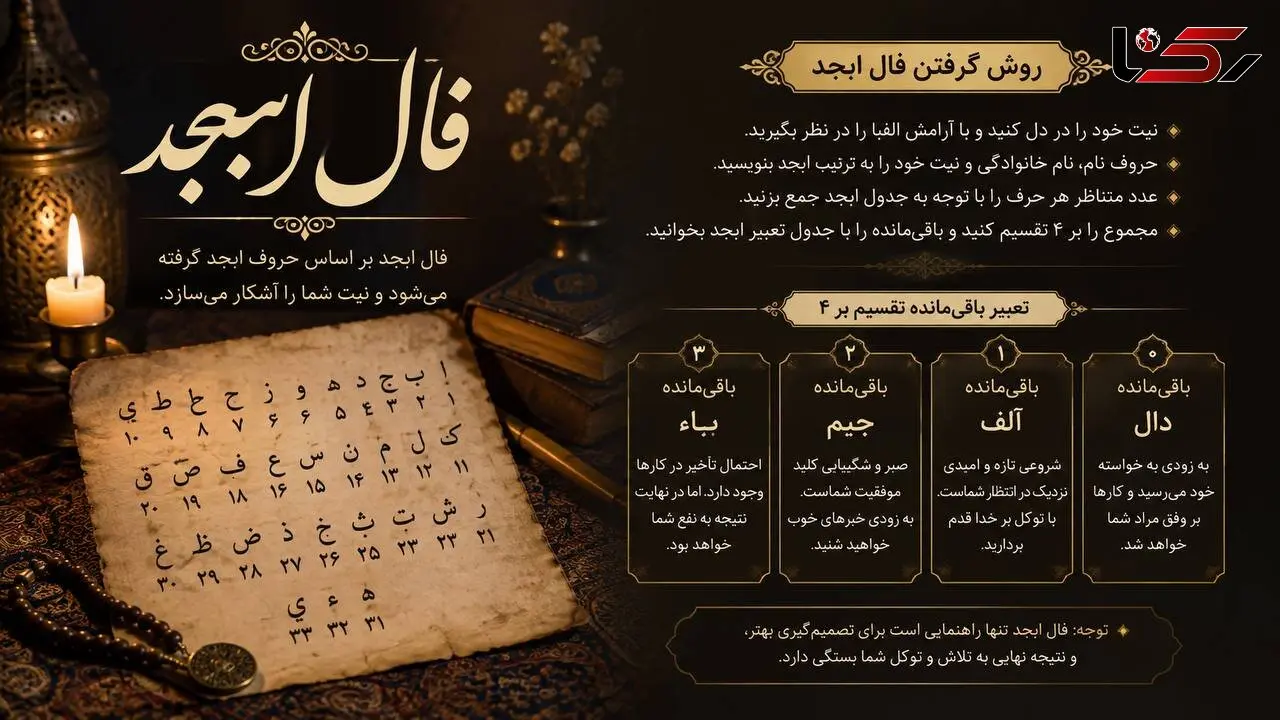 رکنا
روش گرفتن فال ابجد
نیت خود را در دل کنید و با آرامش الفبا را در نظر بگیرید.
حروف نام، نام خانوادگی و نیت خود را به ترتیب ابجد بنویسید.
عدد متناظر هر حرف را با توجه به جدول ابجد جمع بزنید.
مجموع را بر ۴ تقسیم کنید و باقی‌مانده را با جدول تعبیر ابجد بخوانید.
تعبیر باقی‌مانده تقسیم بر ۴
۰
باقی‌مانده
دال
به زودی به خواسته
خود می‌رسید و کارها
بر وفق مراد شما
خواهد شد.
۱
باقی‌مانده
آلف
شروعی تازه و امیدی
نزدیک در انتظار شماست.
با توکل بر خدا قدم
بردارید.
۲
باقی‌مانده
جیم
صبر و شگیبایی کلید
موفقیت شماست.
به زودی خبرهای خوب
خواهید شنید.
۳
باقی‌مانده
بباء
احتمال تأخیر در کارها
وجود دارد. اما در نهایت
نتیجه به نفع شما
خواهد بود.
توجه: فال ابجد تنها راهنمایی است برای تصمیم‌گیری بهتر،
و نتیجه نهایی به تلاش و توکل شما بستگی دارد.
فال ابجد
فال ابجد بر اساس حروف ابجد گرفته
می‌شود و نیت شما را آشکار می‌سازد.
ا ب ج د ه و ز ح ط ي
۱ ۲ ۳ ۴ ۵ ۶ ۶ ۷ ۸ ۹ ۱۰
ک ل م ن س ع ف ص ق
۱۱ ۱۲ ۱۳ ۱۴ ۱۵ ۱۶ ۱۸ ۱۹ ۲۰
ر ش ت ث خ ذ ض ظ غ
۲۱ ۲۳ ۲۳ ۲۵ ۲۶ ۲۷ ۲۸ ۲۹ ۳۰
ه ء ي
۳۱ ۳۲ ۳۳